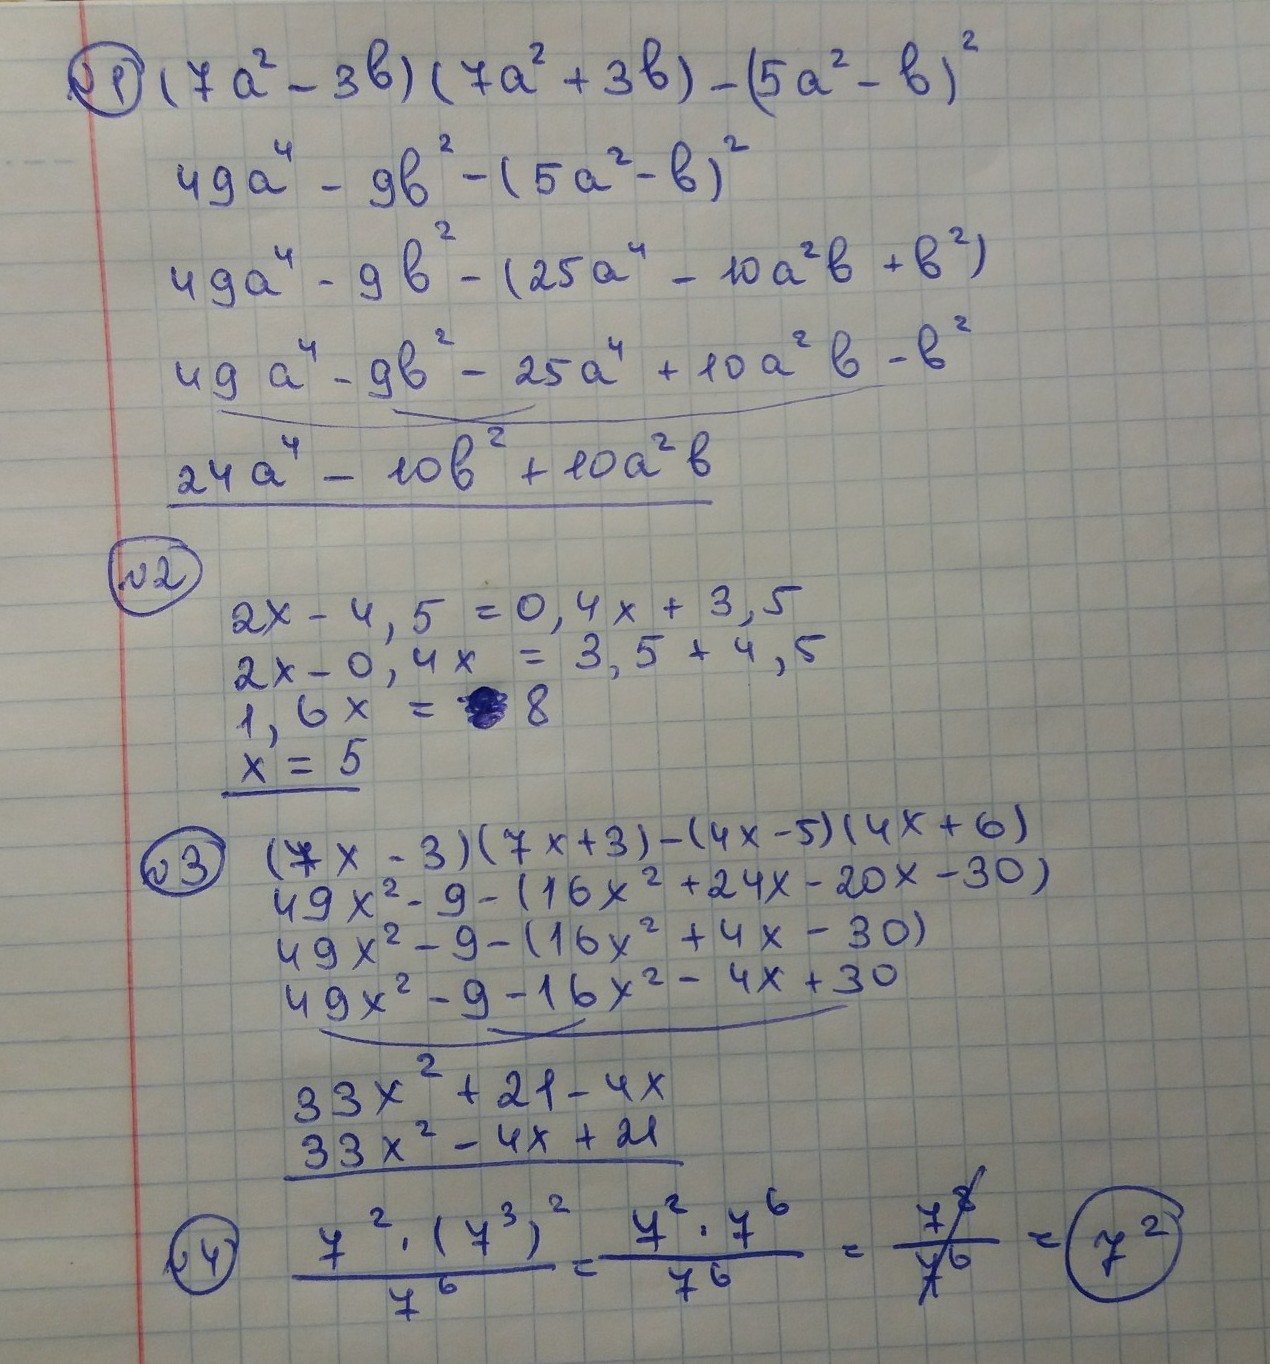 №1 (7a² - 3в)(7a² + 3в) - (5a² - в)²
49a⁴ - 9в² - (5a² - в)²
49a⁴ - 9в² - (25a⁴ - 10a²в + в²)
49a⁴ - 9в² - 25a⁴ + 10a²в - в²
24a⁴ - 10в² + 10a²в
№2
2x - 4,5 = 0,4x + 3,5
2x - 0,4x = 3,5 + 4,5
1,6x = 8
x = 5
№3 (7x - 3)(7x + 3) - (4x - 5)(4x + 6)
49x² - 9 - (16x² + 24x - 20x - 30)
49x² - 9 - (16x² + 4x - 30)
49x² - 9 - 16x² - 4x + 30
33x² + 21 - 4x
33x² - 4x + 21
№4 7² · (7³)² / 7⁶ = 7² · 7⁶ / 7⁶ = 7⁸ / 7⁶ = 7²